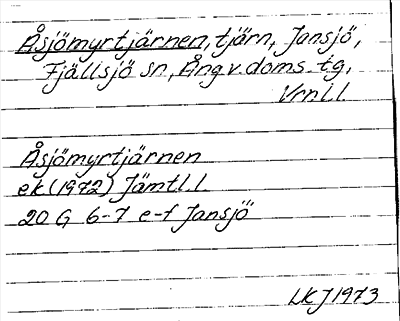 Åsjömyrtjärnen, tjärn, Jansjö,
Fjällsjö sn, Ång v. doms. tg,
Vrnl.l
Åsjömyrtjärnen
ek (1972) Jämtl.l
20 G 6-7 e-f Jansjö
LKJ 1973